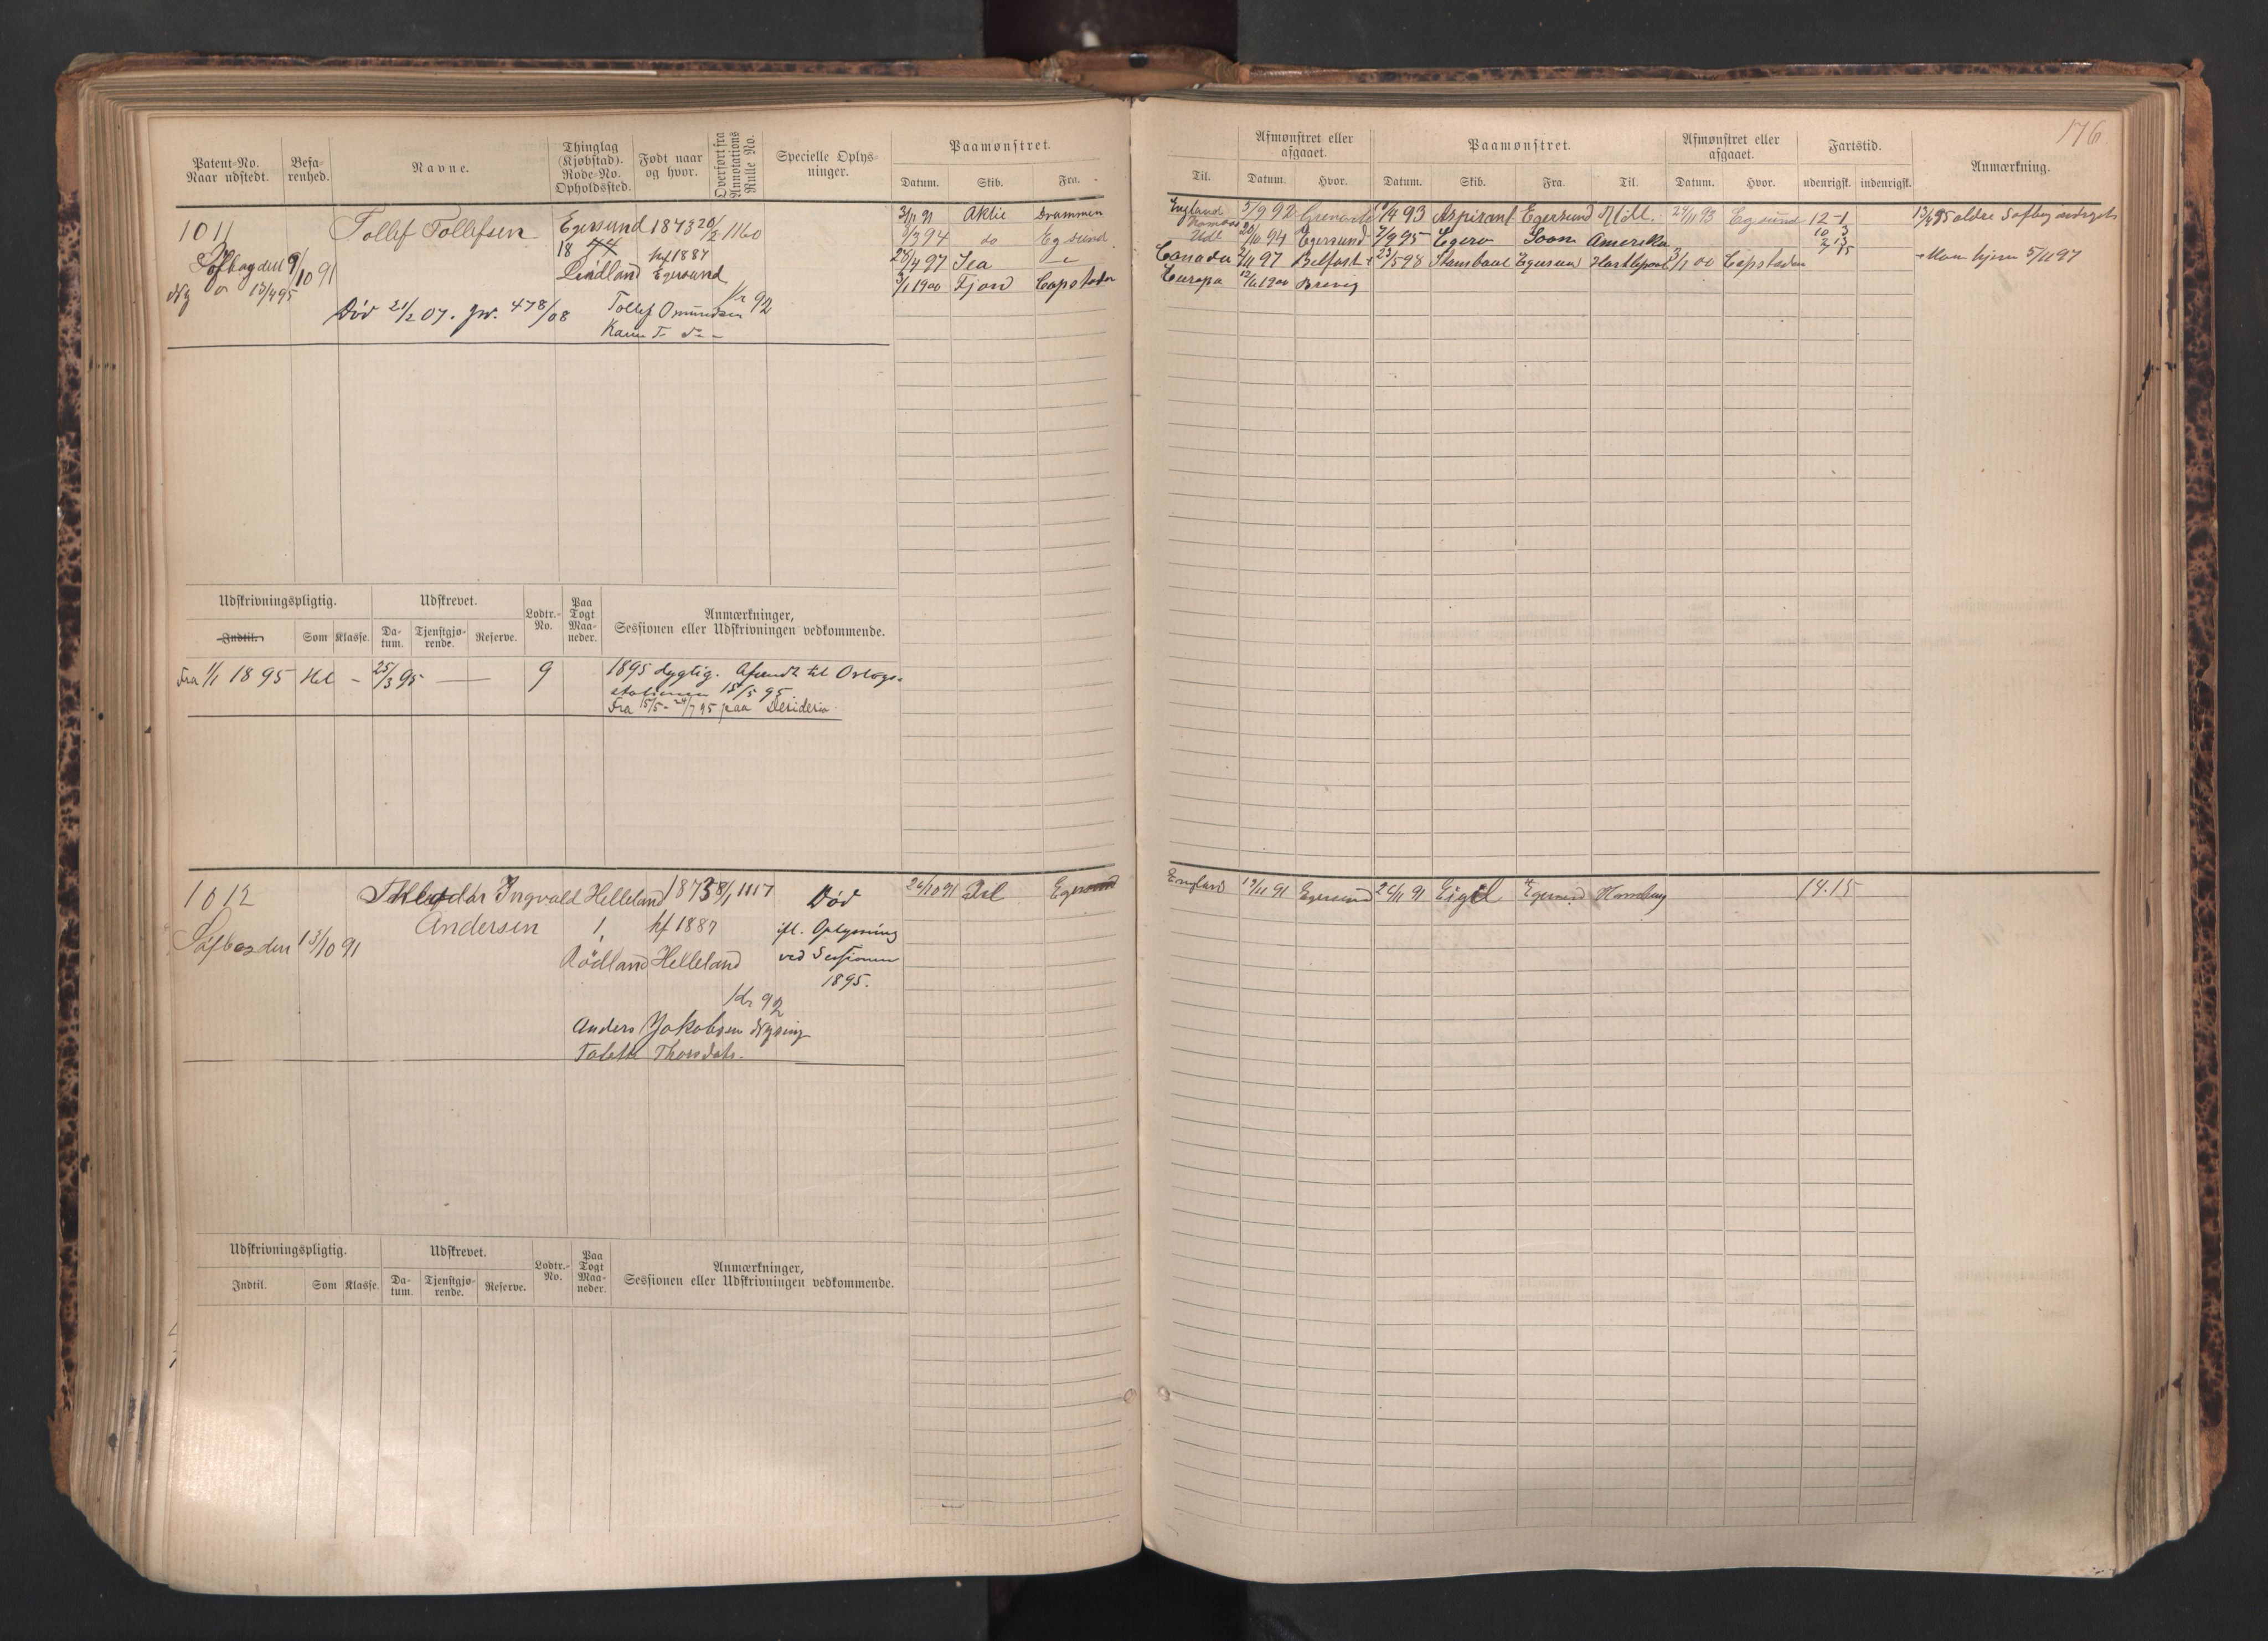 176
Patent-No. Naar udstedt.
Besarenhed.
Navne.
Thinglag (Kjøbstad). Rode-No. Opholdssted.
Født naar og hvor.
Overført fra Annotations Rulle No.
Specielle Oplysninger.
Paamønstret.
Datum. Skib. Fra.
Til.
Afmønstret eller afgaaet.
Datum. Hvor.
Paamønstret.
Datum. Skib. Fra. Til.
Afmønstret eller afgaaet.
Datum. Hvor.
Fartstid.
udenrigsk. indenrigsk.
Anmærkning.
1011 Tollef Tollefsen Egersund 1873 20/2 1160
18 44 kf 1887
Søfbog den 9/10 91
Lindland Egersund
Ny 13/4 95
Kr 92
Død 21/2 07. Jw. 478/08
Tollef Omundsen
3/11 91 Aktie Drammen England 5/9 92 10/4 93 Aspirant Egersund 24/11 93 Egsund 12-1
8/3 94 do Egsund 20/10 94 Egersund 7/9 95 Egero Soon Amerika
28/4 97 Canada 7/11 97 Belfast 23/5 98 Stambaul Egersund Hartlepool 3/1 00 Capstaden
3/1 1900 Fjord Capstaden Europa 12/6 1900 Brevig
13/4 95 ældre Søfbog
Møn hjem 5/11 97
Udskrivningspligtig. Udskrevet. Lodtr.-No. Paa Togt Maaneder. Anmærkninger, Sessionen eller Udskrivningen vedkommende.
Indtil. Som Klasse. Datum. Tjenstgjørende. Reserve.
Fra 1/1 1895 Hel - 25/3 95 — 9 1895 dygtig. Afsendt til Orlogs-
stationen 15/5 95
Fra 15/5 - 24/7 95 paa Desideria
1012 Theodor Ingvald Helleland 1873 8/1 1117 Død
Andersen 1, kf 1887 ifl. Oplysning
Søfbog den 13/10 91 Rødland Helleland ved Sessionen
1895.
Kr 92
Anders Jakobsen Nysing
Tolette Thorsdatr.
26/10 91 Egersund England 19/11 91 Egersund 26/11 91 Eigil Egersund Hamburg 14.15
Udskrivningspligtig. Udskrevet. Lodtr.-No. Paa Togt Maaneder. Anmærkninger, Sessionen eller Udskrivningen vedkommende.
Indtil. Som Klasse. Datum. Tjenstgjørende. Reserve.